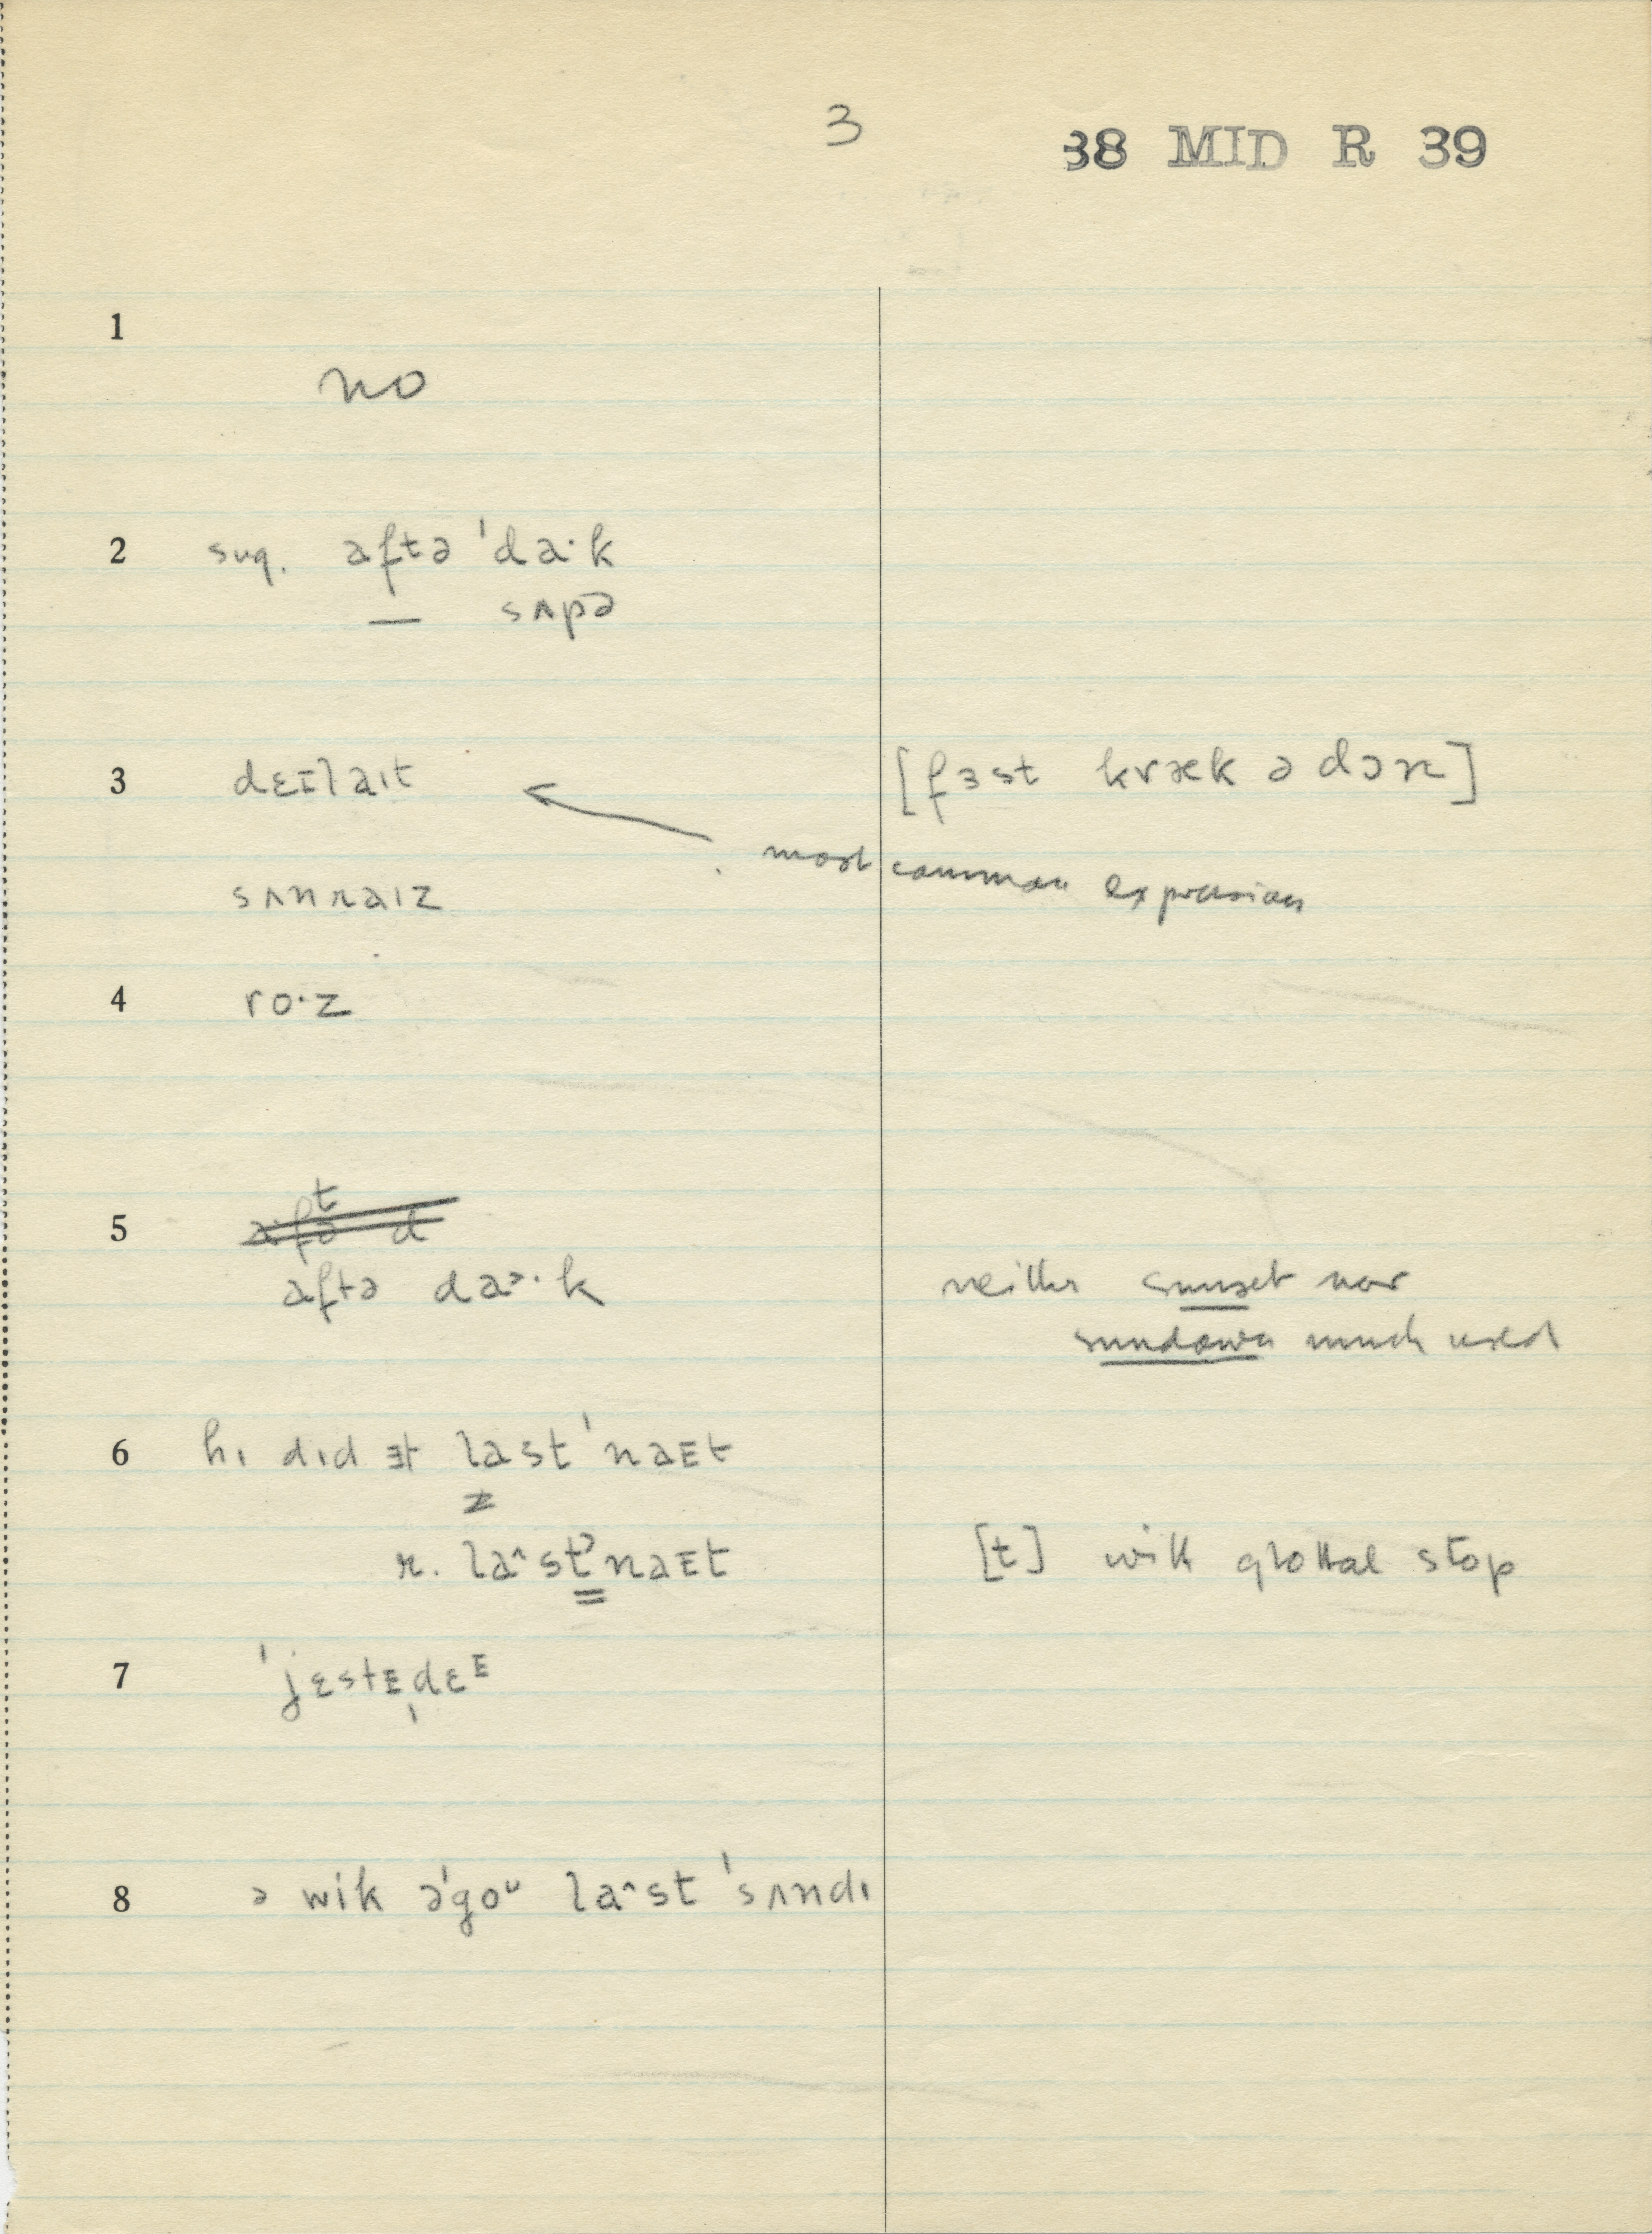 3
38 MID R 39
1
no
2 sug. aftə ˈda·k
— sʌpə
3 dɛɪlaɪt [fɜst kræk ə dɔn]
most common expression
sʌnraɪz
4 ro·z
5
aftə da˃·k neither sunset nor
sundown much used
6 hɪ dɪd ɪt last ˈnaEt
r. la^stˀnaEt [t] with glottal stop
7 ˈjɛstEˌdɛᴱ
8 ə wik əˈgoᵘ la^st ˈsʌndɪ